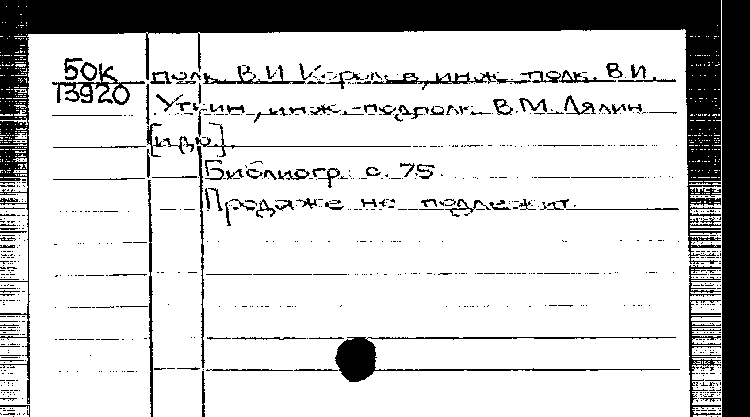 50К полк. В.И Королев, инж.-полк. В.И.
13920 Уткин, инж.-подполк. В.М. Лялин
[и др.].
Библиогр. с. 75.
Продаже не подлежит.